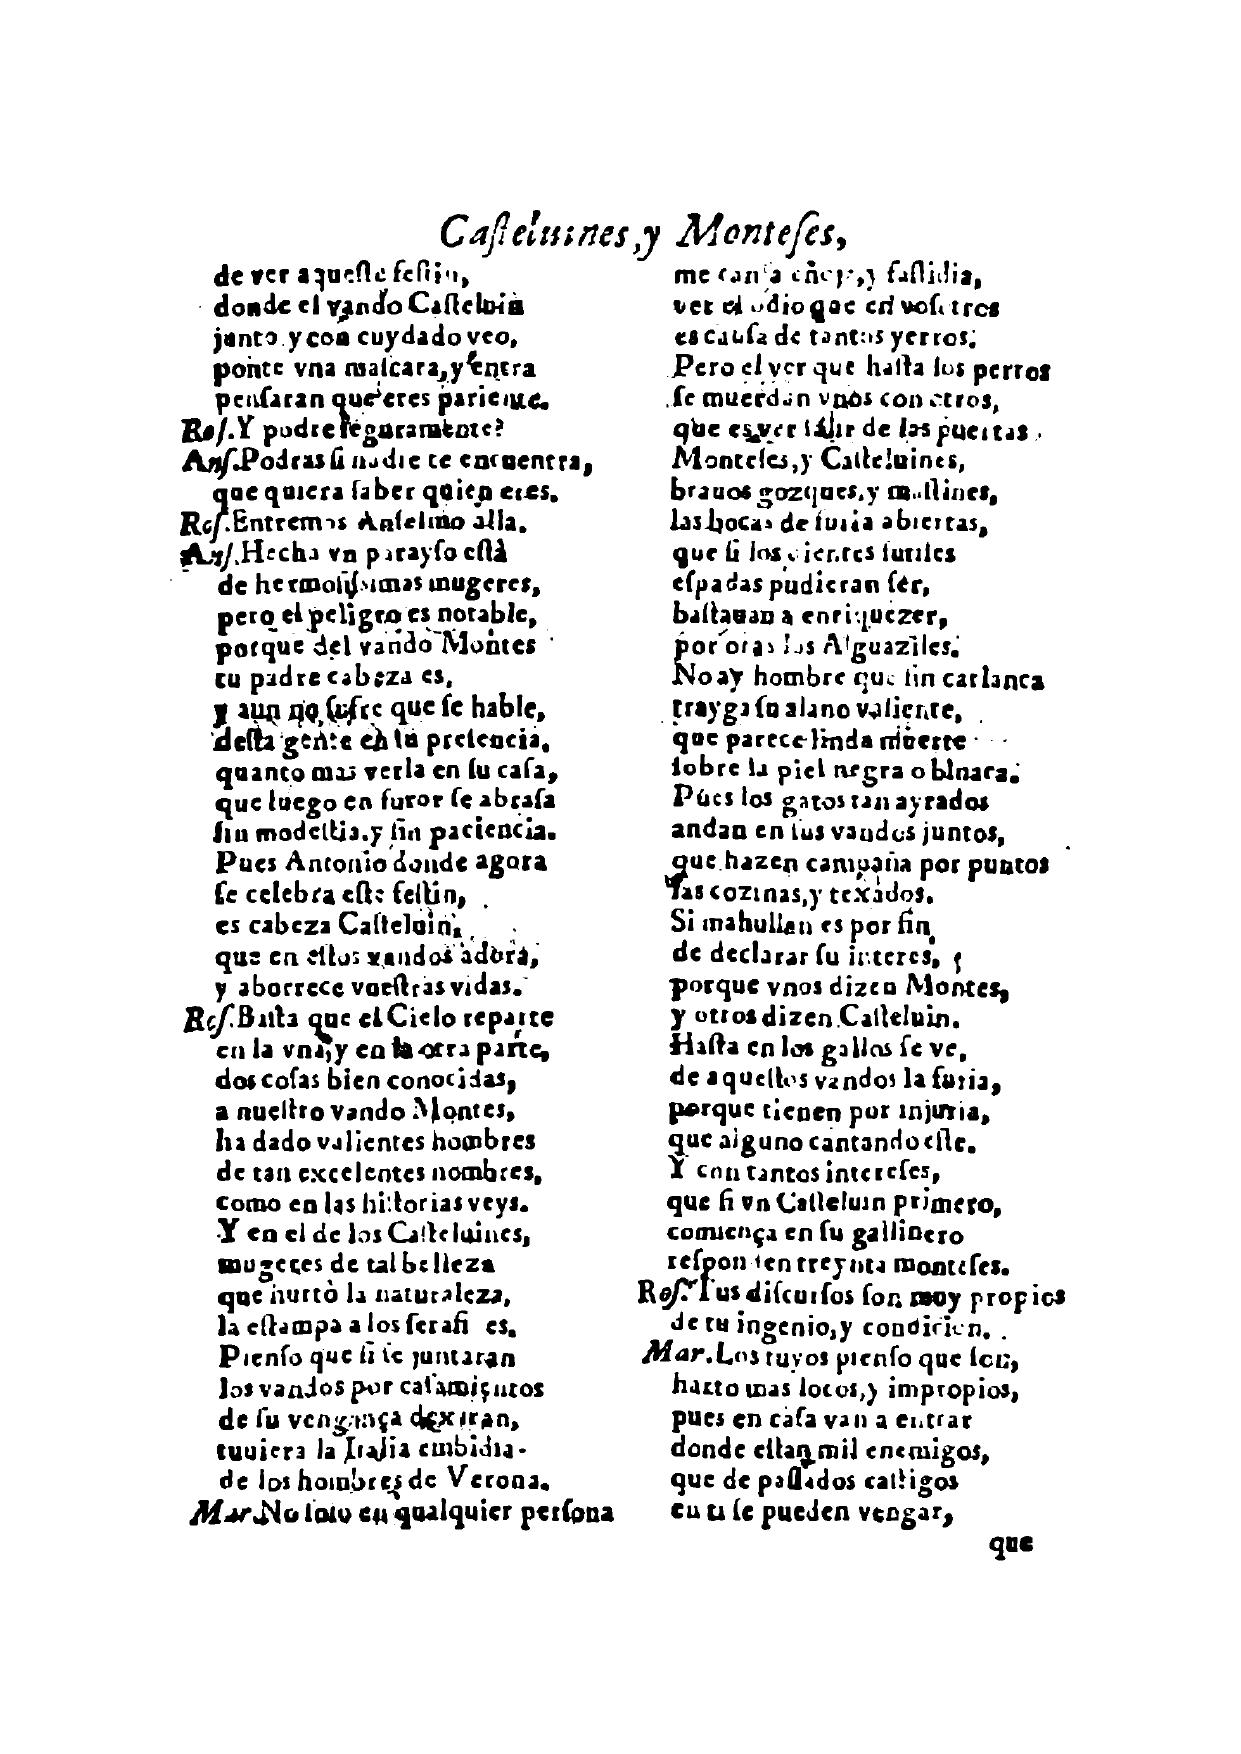 Casteluines, y Monteses,
de ver aqueste festin,
donde el vando Casteluin
junto, y con cuydado veo,
ponte vna mascara, y entra
pensaran que eres pariente.
Ros. Y podre seguramente?
Ans. Podras si nadie te encuentra,
que quiera saber quien eres.
Ros. Entremos Anselmo alla.
Ans. Hecha vn parayso està
de hermosissimas mugeres,
pero el peligro es notable,
porque del vando Montes
tu padre cabeza es,
y aun no sufre que se hable,
desta gente en su presencia,
quanto mas verla en su casa,
que luego en furor se abrasa
sin modestia, y sin paciencia.
Pues Antonio donde agora
se celebra este festin,
es cabeza Casteluin,
que en estos vandos adora,
y aborrece vuestras vidas.
Ros. Basta que el Cielo reparte
en la vna, y en la otra parte,
dos cosas bien conocidas,
a nuestro vando Montes,
ha dado valientes hombres
de tan excelentes nombres,
como en las historias veys.
Y en el de los Casteluines,
mugeres de tal belleza
que hurtò la naturaleza,
la estampa a los serafi es.
Pienso que si se juntaran
los vandos por casamientos
de su vengança dexaran,
tuuiera la Italia embidia
de los hombres de Verona.
Mar. No solo en qualquier persona
me cansa y fastidia,
ver el odio que en vosotros
es causa de tantos yerros.
Pero el ver que hasta los perros
se muerdan vnos con otros,
que es ver salir de las puertas
Monteses, y Casteluines,
brauos gozques, y mastines,
las bocas de furia abiertas,
que si los dientes sutiles
espadas pudieran ser,
bastauan a enriquezer,
por oras los Alguaziles.
No ay hombre que sin carlanca
trayga su alano valiente,
que parece linda muerte
sobre la piel negra o blnara.
Pues los gatos tan ayrados
andan en sus vandos juntos,
que hazen campaña por puntos
las cozinas, y texados.
Si mahullan es por fin
de declarar su interes,
porque vnos dizen Montes,
y otros dizen Casteluin.
Hasta en los gallos se ve,
de aquellos vandos la furia,
porque tienen por injuria,
que alguno cantando este.
Y con tantos intereses,
que si vn Casteluin primero,
comiença en su gallinero
responden treynta monteses.
Ros. Tus discursos son muy propios
de tu ingenio, y condicion.
Mar. Los tuyos pienso que son,
harto mas locos, y impropios,
pues en casa van a entrar
donde estan mil enemigos,
que de passados castigos
en ti se pueden vengar,
que